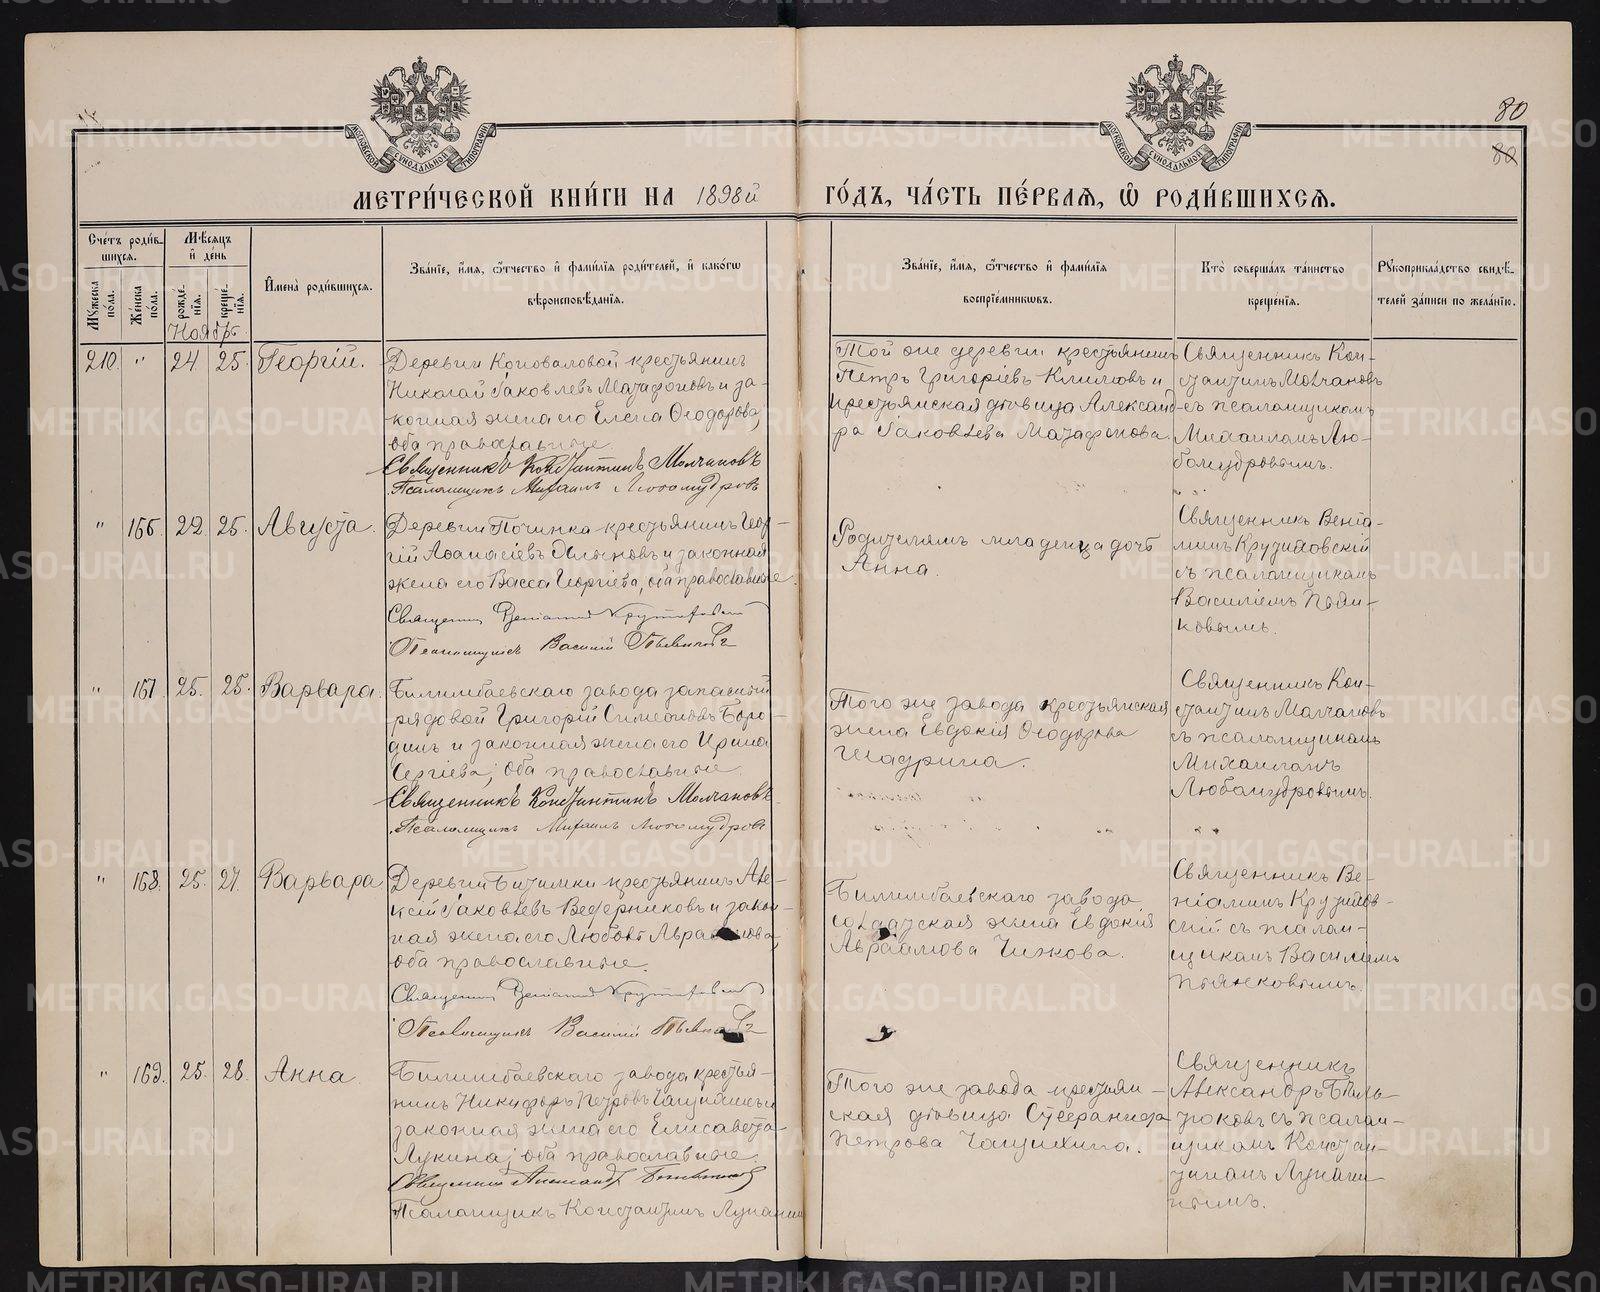 80
80
МОСКОВСКОЙ СѴНОДАЛЬНОЙ ТИПОГРАФІИ
МОСКОВСКОЙ СѴНОДАЛЬНОЙ ТИПОГРАФІИ
МЕТРИ́ЧЕСКОЙ КНИ́ГИ НА 1898й ГО́ДЪ, ЧА́СТЬ ПЕ́РВАЯ, Ѡ҆ РОДИ́ВШИХСЯ.
Сче́тъ роди́вшихся.
Му́жеска по́ла.
Же́нска по́ла.
Мѣ́сяцъ и҆ де́нь
рожде́нїя.
креще́нїя.
Ноябрь
И҆мена̀ роди́вшихся.
Зва́нїе, и҆́мя, ѻ҆́тчество и҆ фами́лїя роди́телей, и҆ како́гѡ вѣроисповѣ́данїя.
Зва́нїе, и҆́мя, ѻ҆́тчество и҆ фами́лїя воспрїе́мникѡвъ.
Кто̀ соверша́лъ та́инство креще́нїя.
Рꙋкоприкла́дство свидѣ́телей за́писи по жела́нїю.
210 " 24 25 Георгій.
Деревни Коноваловой крестьянинъ
Николай Яковлевъ Мазафоновъ и за-
конная жена его Елена Ѳеодорова,
оба православные
Священникъ Константинъ Молчановъ
Псаломщикъ Михаилъ Любомудровъ
Той же деревни крестьянинъ
Петръ Григоріевъ Климовъ и
крестьянская дѣвица Александ-
ра Яковлева Мазафонова
Священникъ Кон-
стантинъ Молчановъ
съ псаломщикомъ
Михаиломъ Лю-
бомудровымъ.
" 166 22 25 Августа.
Деревни Починка крестьянинъ Геор-
гій Аѳанасіевъ и законная
жена его Васса Георгіева, оба православные.
Священникъ Веніаминъ
Псаломщикъ Василій Пьянковъ
Родителямъ младенца дочь
Анна.
Священникъ Веніа-
минъ
съ псаломщикомъ
Василіемъ Пьян-
ковымъ.
" 167 25. 25. Варвара.
Билимбаевскаго завода запасный
рядовой Григорій Симеоновъ Боро-
динъ и законная жена его Ирина
Сергіева, оба православные.
Священникъ Константинъ Молчановъ
Псаломщикъ Михаилъ Любомудровъ
Того же завода крестьянская
жена Евдокія Ѳеодорова
Шадрина.
Священникъ Кон-
стантинъ Молчановъ
съ псаломщикомъ
Михаиломъ
Любомудровымъ.
" 168. 25. 27. Варвара
Деревни Битимки крестьянинъ Але-
ксій Яковлевъ Ведерниковъ и закон-
ная жена его Любовь Авраамова,
оба православные.
Священникъ Веніаминъ
Псаломщикъ Василій Пьянковъ
Билимбаевскаго завода
солдатская жена Евдокія
Авраамова Чижова.
Священникъ Ве-
ніаминъ
съ псалом-
щикомъ Василіемъ
Пьянковымъ.
" 169. 25. 28. Анна
Билимбаевскаго завода крестья-
нинъ Никифоръ Петровъ и
законная жена его Елисавета
Лукина, оба православные.
Священникъ Александръ
Псаломщикъ Константинъ
Того же завода крестьян-
ская дѣвица Стефанида
Петрова
Священникъ
Александръ
съ псалом-
щикомъ Констан-
тиномъ